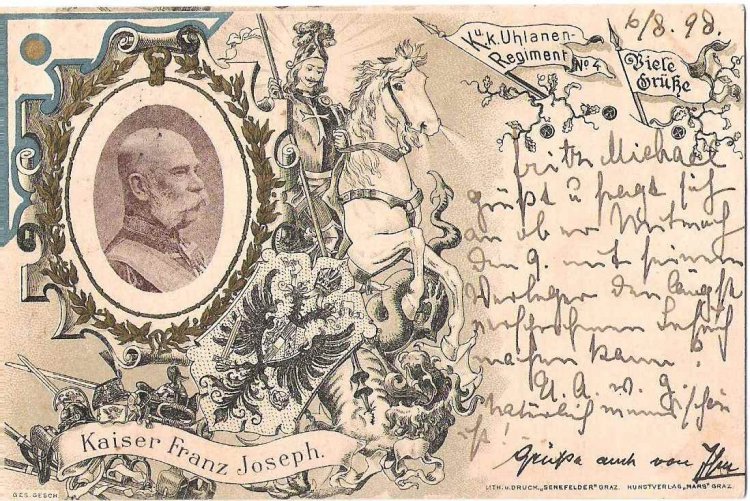 6/8.98.
K.u.k. Uhlanen-
Regiment No 4
Viele
Grüße
Fritz Michael
grüßt u fragt sich
an ob er Mittwoch
den 9. mit seinem
Verleger den längst
versprochenen Besuch
machen kann?
U. A. w. g.
Natürlich
Grüße auch von
Kaiser Franz Joseph.
GES. GESCH.
LITH. u. DRUCK. „SENEFELDER" GRAZ. KUNSTVERLAG „MARS" GRAZ.